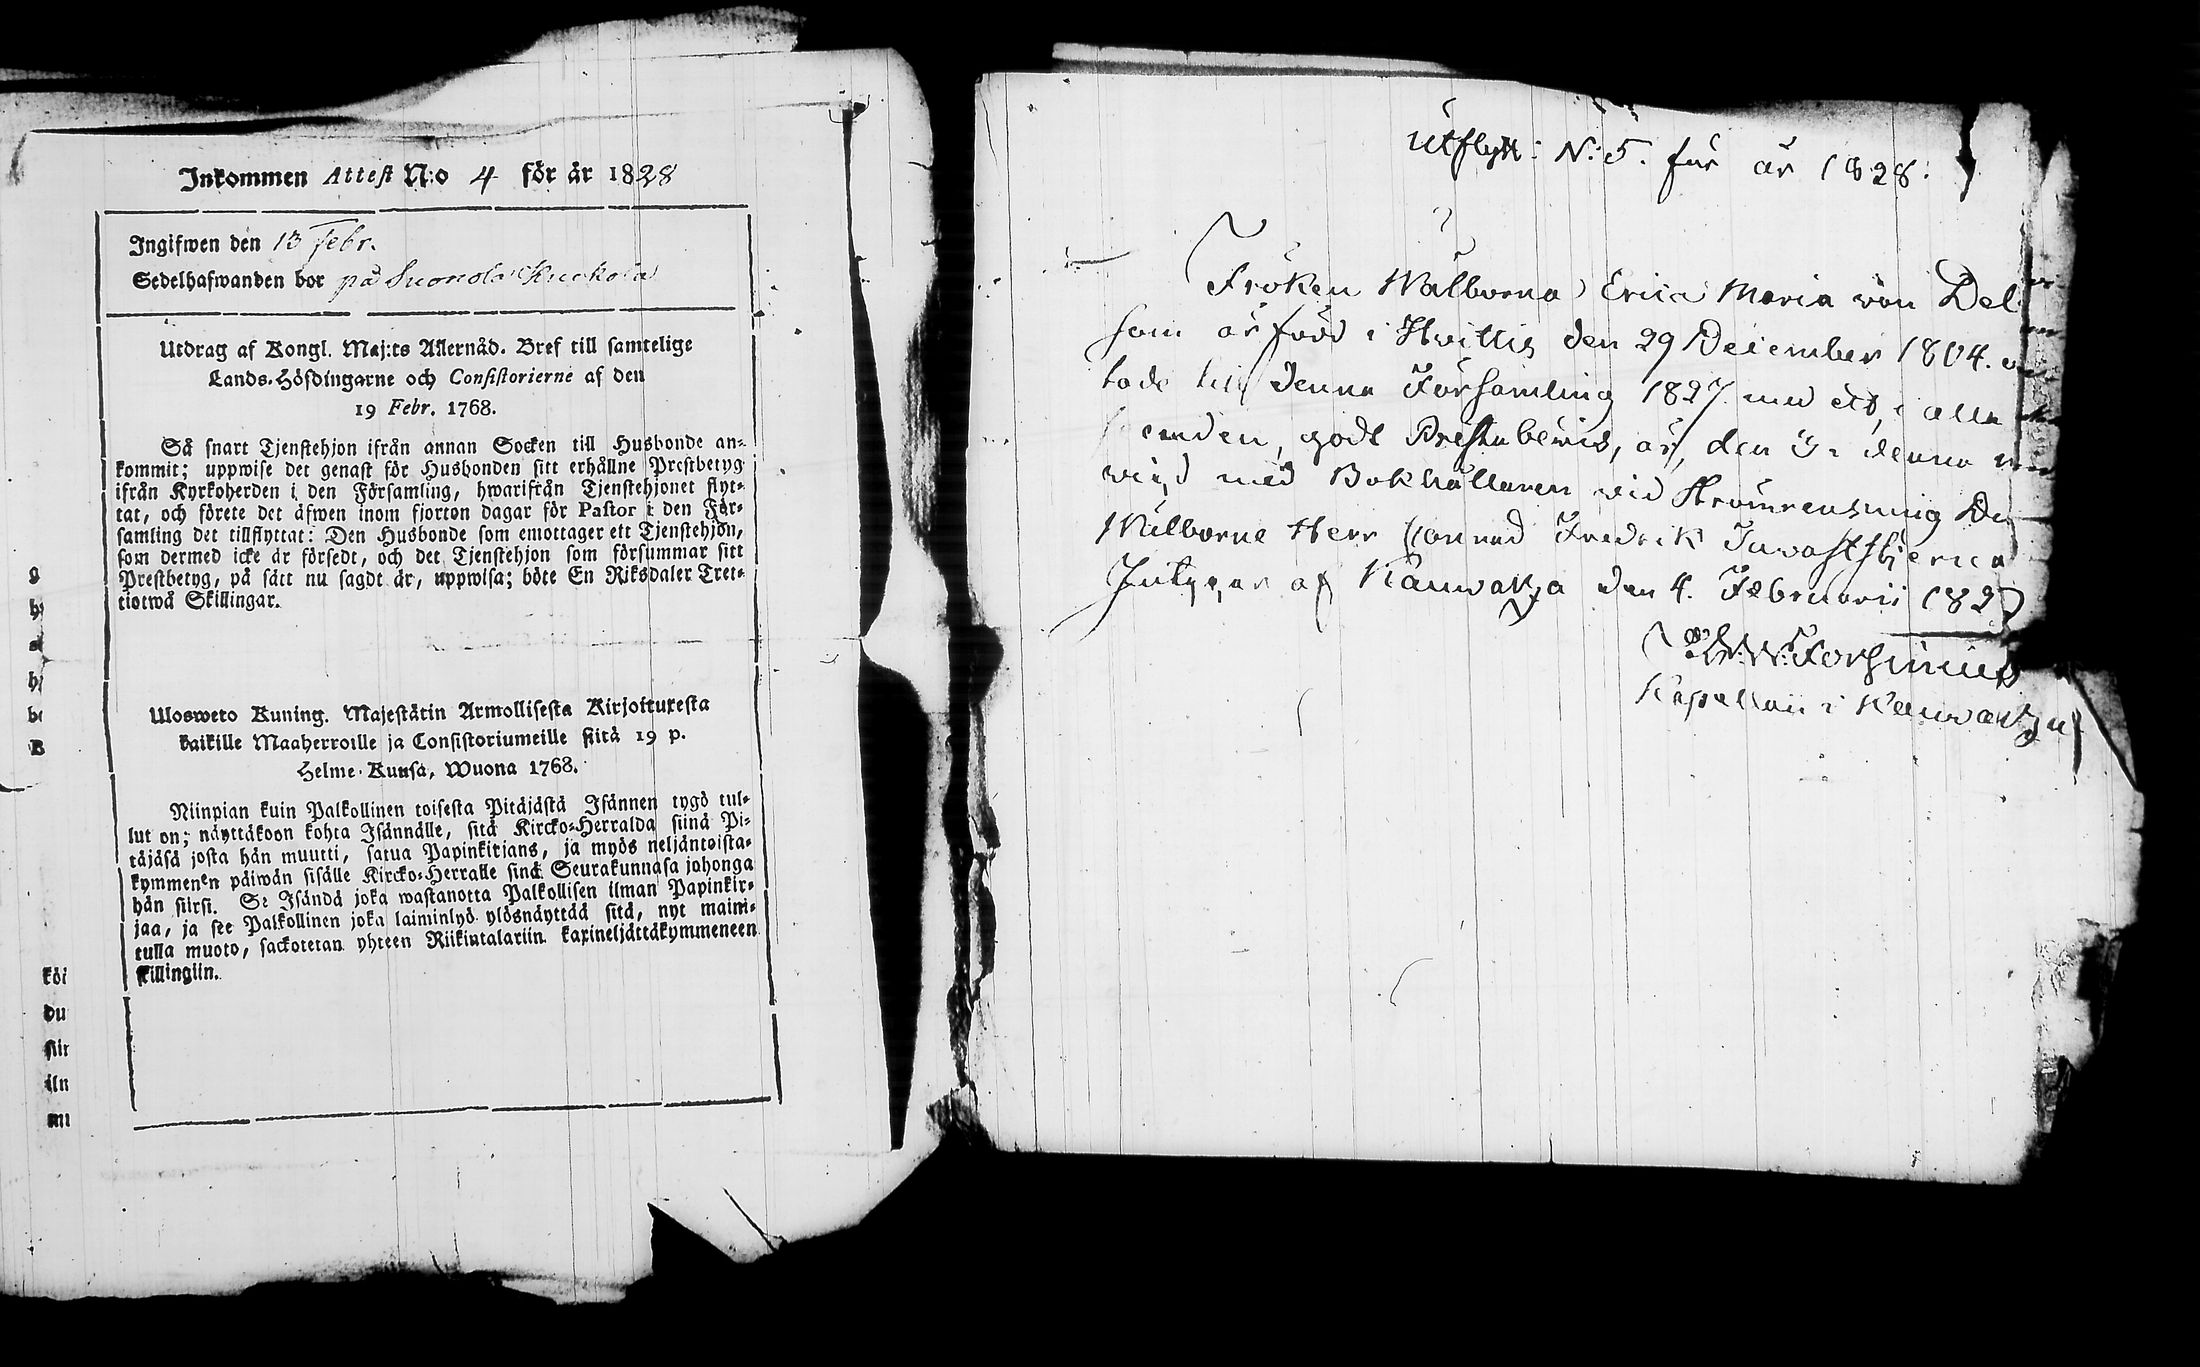 Inkommen Attest N:o 4 för år 1828
Ingifwen den 13 Febr.
Sedelhafwanden bor på Suonola
Utdrag af Kongl. Maj:ts Allernåd. Bref till samtelige
Lands-Höfdingarne och Consistorierne af den
19 Febr. 1768.
Så snart Tjenstehjon ifrån annan Socken till Husbonde an-
kommit; uppwise det genast för Husbonden sitt erhållne Prestbetyg
ifrån Kyrkoherden i den Församling, hwarifrån Tjenstehjonet flyt-
tat, och förete det äfwen inom fjorton dagar för Pastor i den För-
samling det tillflyttat: Den Husbonde som emottager ett Tjenstehjon,
som dermed icke är försedt, och det Tjenstehjon som försummar sitt
Prestbetyg, på sätt nu sagdt är, uppwisa; böte En Riksdaler Tret-
tiotwå Skillingar.
Ulosweto Kuning. Majestätin Armollisesta Kirjoituxesta
kaikille Maaherroille ja Consistoriumeille siitä 19 p.
Helme-Kuusa, Wuona 1768.
Niinpian kuin Palkollinen toisesta Pitäjästä Isännen tygö tul-
lut on; näyttäkoon kohta Isännälle, sitä Kircko-Herralda siinä Pi-
täjäsä josta hän muutti, satua Papinkirjans, ja myös neljäntoista-
kymmenen päiwän sisälle Kircko-Herralle sinä Seurakunnasa johonga
hän siirsi. Se Isändä joka wastanotta Palkollisen ilman Papinkir-
jaa, ja see Palkollinen joka laiminlyö ylösnäyttää sitä, nyt maini-
tulla muoto, sackotetan yhteen Riikintalariin kaxineljättäkymmeneen
skillingiin.
g
h
a
h
be
B
köi
du
siir
iln
mu
utflytt: N:5. för år 1828.
Fröken Wälborna Erica Maria von Del
som är född i Hvittis den 29 December 1804.
tade till denna Församling 1827 med ett, i alla
anden, godt Prestabevis, är, den 3 i denna
vigd med Bokhållaren vid Strömrensning De
Wälborne Herr Conrad Fredrik Tavaststjerna
Intygar af Kauvatza den 4. Februarii 182
Forsinius
Kapellan i Kauvatza